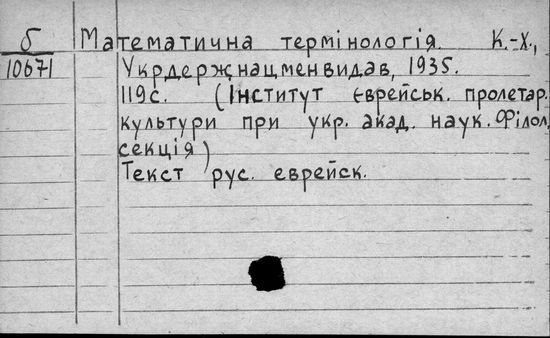 б Математична термінологія. К.-Х.,
10671 Укрдержнацменвидав, 1935.
119с. (Інститут єврейськ. пролетар.
культури при укр. акад. наук. Філол.
секція)
Текст рус. еврейск.